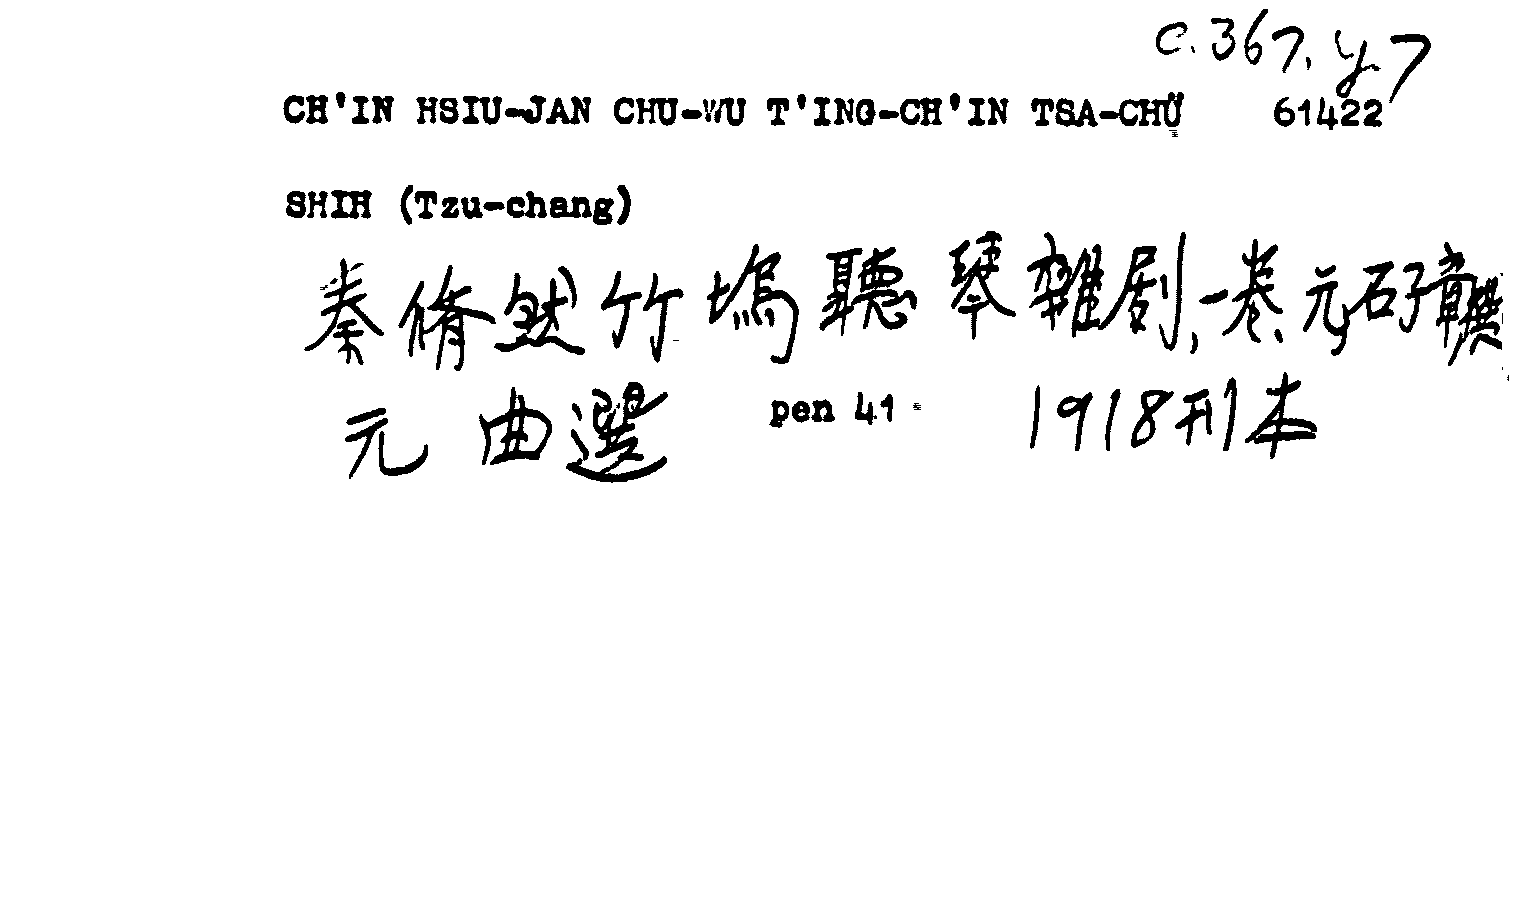 c.367.y7
CH'IN HSIU-JAN CHU-WU T'ING-CH'IN TSA-CHÜ 61422
SHIH (Tzu-chang)
秦脩然竹塢聽琴雜剧,一卷.元石子章撰
元曲選 pen 41 1918刊本